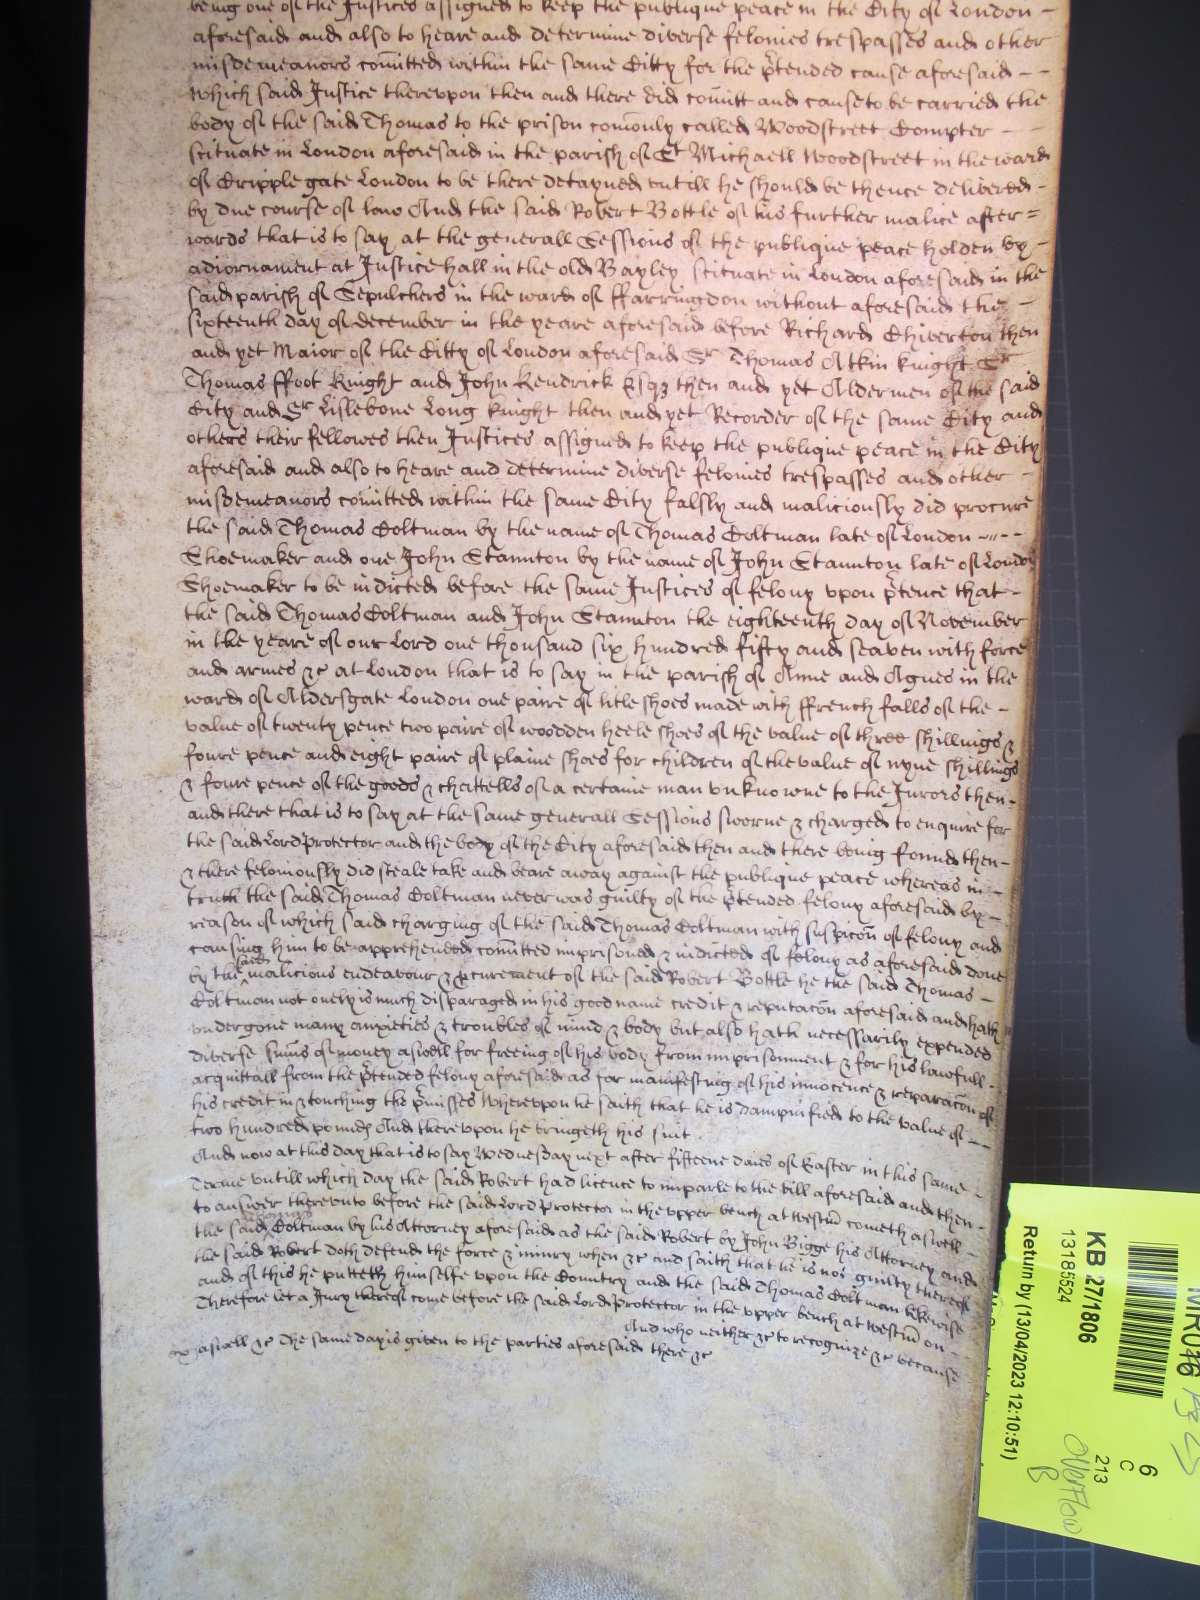 being one of the Justices assigned to keep the publique peace in the City of London -
aforesaid and also to heare and determine diverse felonies trespasses and other
misdemeanors comitted within the same Citty for the p̃tended cause aforesaid - -
which said Justice therevpon then and there did comitt and cause to be carried the
body of the said Thomas to the prison comonly called Woodstreet Compter - -
scituate in London aforesaid in the parish of St Michaell Woodstreet in the ward
of Cripplegate London to be there detayned vntill he should be thence delivered -
by due course of law And the said Robert Bottle of his further malice after=
wards that is to say at the generall Sessions of the publique peace holden by -
adiornament at Justice hall in the old Bayley scituate in London aforesaid in the
said parish of Sepulchers in the ward of ffarringdon without aforesaid the -
sixteenth day of december in the yeare aforesaid before Richard Chiverton then
and yet Maior of the Citty of London aforesaid Sr Thomas Atkin knight Sr
Thomas ffoot Knight and John Kendrick Esqz then and yet Aldermen of the said
City and Sr Lislebone Long knight then and yet Recorder of the same City and
others their fellowes then Justices assigned to keep the publique peace in the City
aforesaid and also to heare and determine diverse felonies trespasses and other -
misdemeanors comitted within the same City falsly and maliciously did procure
the said Thomas Coltman by the name of Thomas Coltman late of London - - - -
Shoemaker and one John Stannton by the name of John Stannton late of London
Shoemaker to be indicted before the same Justices of felony vpon p̃tence that -
the said Thomas Coltman and John Stannton the eighteenth day of November
in the yeare of our Lord one thousand six hundred fifty and seaven with force
and armes &c at London that is to say in the parish of Anne and Agnes in the
ward of Aldersgate London one paire of litle shoes made with ffrench falls of the -
value of twenty pence two paire of woodden heele shoes of the value of three shillings &
foure pence and eight paire of plaine shoes for children of the value of nyne shillings
& foure pence of the goods & chattells of a certaine man vnknowne to the Jurors then -
and there that is to say at the same generall Sessions sworne & charged to enquire for
the said Lord Protector and the body of the City aforesaid then and there being found then -
& there feloniously did steale take and beare away against the publique peace whereas in -
truth the said Thomas Coltman never was guilty of the p̃tended felony aforesaid by -
reason of which said charging of the said Thomas Coltman with suspicõn of felony and
causing him to be apprehended comitted imprisoned & indicted of felony as aforesaid done
by the said malicious endeavour & pcurement of the said Robert Bottle he the said Thomas -
Coltman not onely is much disparaged in his good name credit & reputacõn aforesaid and hath
vndergone many anxieties & troubles of mind & body but also hath necessarily expended
diverse sum̃s of money aswell for freeing of his body from imprisonment & for his lawfull -
acquittall from the p̃tended felony aforesaid as for manifesting of his innocence & reparacõn of
his credit in & touching the p̃misses Wherevpon he saith that he is dampnified to the value of - -
two hundred pounds And therevpon he bringeth his suit .
And now at this day that is to say Wednesday next after fifteene daies of Easter in this same -
Terme vntill which day the said Robert had licence to imparle to the bill aforesaid and then -
to answer therevnto before the said Lord Protector in the vpper bench at Westm̃ cometh aswell -
the said Thomas Coltman by his Attorney aforesaid as the said Robert by John Bigge his Attorney and
the said Robert doth defend the force & iniury when &c and saith that he is not guilty thereof
and of this he putteth himselfe vpon the Country and the said Thomas Coltman likewise
Therefore let a Jury thereof come before the said Lord Protector in the vpper bench at Westm̃ on - -
And who neither &c to recognize &c because
aswell &c The same day is given to the parties aforesaid there &c
KB 271/806
13185524
Return by (13/04/2023 12:10:51)
6
C
213
Overflow
B